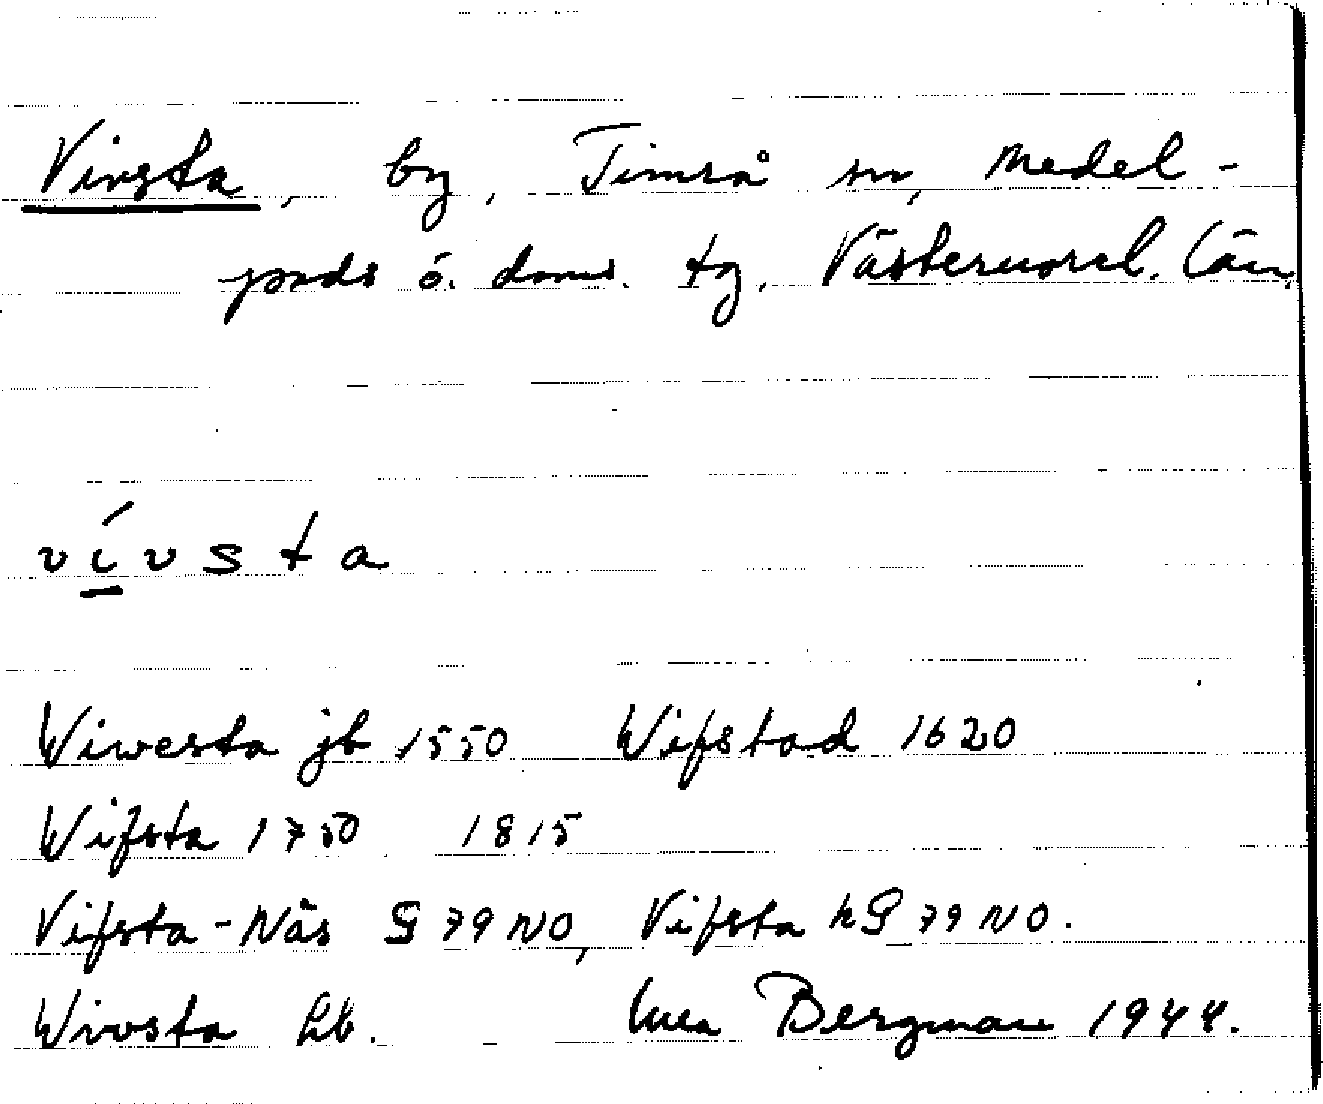 Vivsta, by, Timrå sn, Medel-
pads ö. doms. tg. Västernorrl. län,
vívsta
Wiwesta jb 1550 Wifstad 1620
Wifsta 1750 1815
Vifsta-Näs G 79 NO, Vifsta hG 79 NO.
Wivsta lb. Bergman 1944.